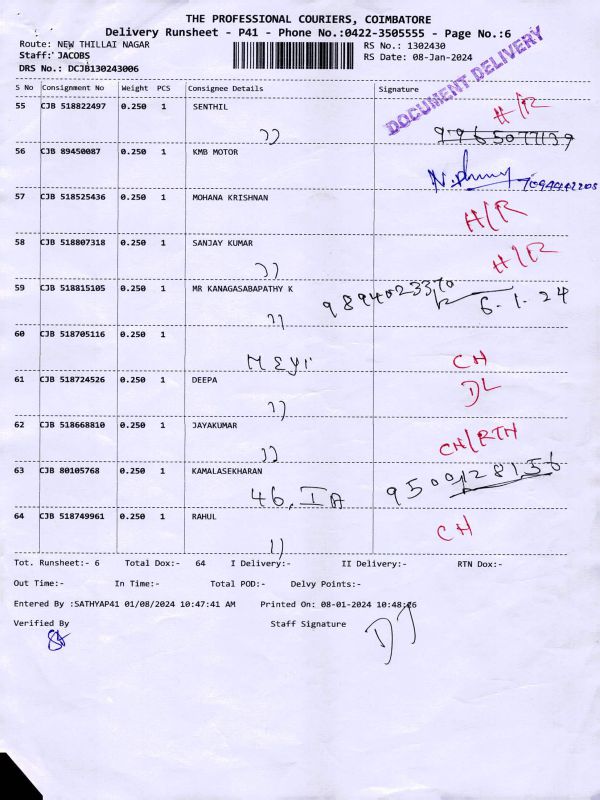 THE PROFESSIONAL COURIERS, COIMBATORE
Delivery Runsheet - P41 - Phone No.:0422-3505555 - Page No.:6
Route: NEW THILLAI NAGAR RS No.: 1302430
Staff: JACOBS RS Date: 08-Jan-2024
DRS No.: DCJB130243006
DOCUMENT DELIVERY
S No Consignment No Weight PCS Consignee Details Signature
55 CJB 518822497 0.250 1 SENTHIL H/R
)) 9965077139
56 CJB 89450087 0.250 1 KMB MOTOR
57 CJB 518525436 0.250 1 MOHANA KRISHNAN H/R
58 CJB 518807318 0.250 1 SANJAY KUMAR H/R
))
59 CJB 518815105 0.250 1 MR KANAGASABAPATHY K 9894023370 6.1.24
))
60 CJB 518705116 0.250 1
CH
61 CJB 518724526 0.250 1 DEEPA DL
))
62 CJB 518668810 0.250 1 JAYAKUMAR CH/RTH
))
63 CJB 80105768 0.250 1 KAMALASEKHARAN 9500128156
46, IA
64 CJB 518749961 0.250 1 RAHUL CH
))
Tot. Runsheet:- 6 Total Dox:- 64 I Delivery:- II Delivery:- RTN Dox:-
Out Time:- In Time:- Total POD:- Delvy Points:-
Entered By :SATHYAP41 01/08/2024 10:47:41 AM Printed On: 08-01-2024 10:48:26
Verified By Staff Signature